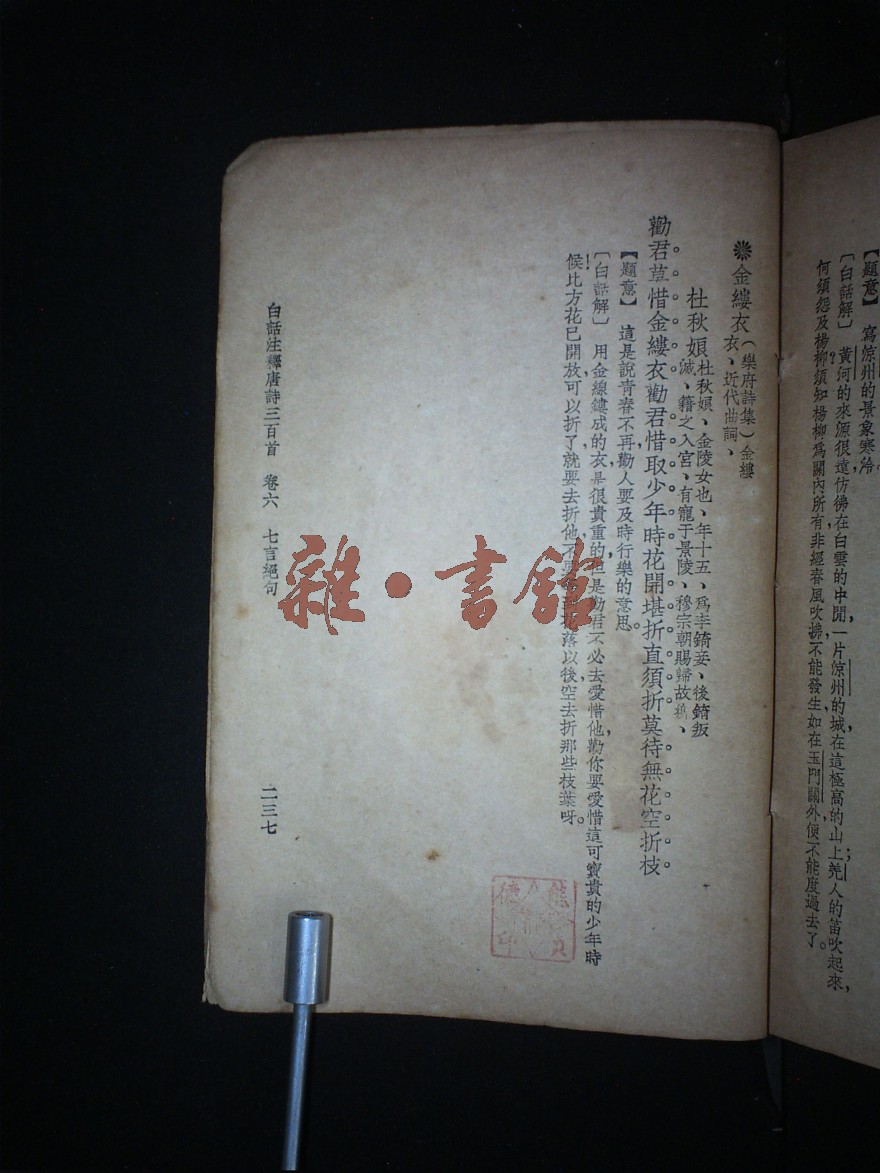 【題意】 寫涼州的景象寒冷。
〔白話解〕 黃河的來源很遠仿彿在白雲的中間，一片涼州的城在這極高的山上；羌人的笛吹起來，
何須怨及楊柳須知楊柳爲關內所有非經春風吹拂，不能發生如在玉門關外，便不能度過去了。
❋金縷衣（樂府詩集）金縷
衣、近代曲詞、
杜秋娘杜秋娘、金陵女也、年十五、爲李錡妾、後錡叛
滅、籍之入宮、有寵于景陵、穆宗朝賜歸故、
勸君莫惜金縷衣。勸君惜取少年時。花開堪折直須折。莫待無花空折枝。
【題意】 這是說青春不再，勸人要及時行樂的意思。
〔白話解〕 用金線鏤成的衣，是很貴重的，但是勸君不必去愛惜他，勸你要愛惜這可寶貴的少年時
候！比方花已開放，可以折了，就要去折他，不要落以後，空去折那些枝葉呀。
白話注釋唐詩三百首 卷六 七言絕句 二三七
雜·書館